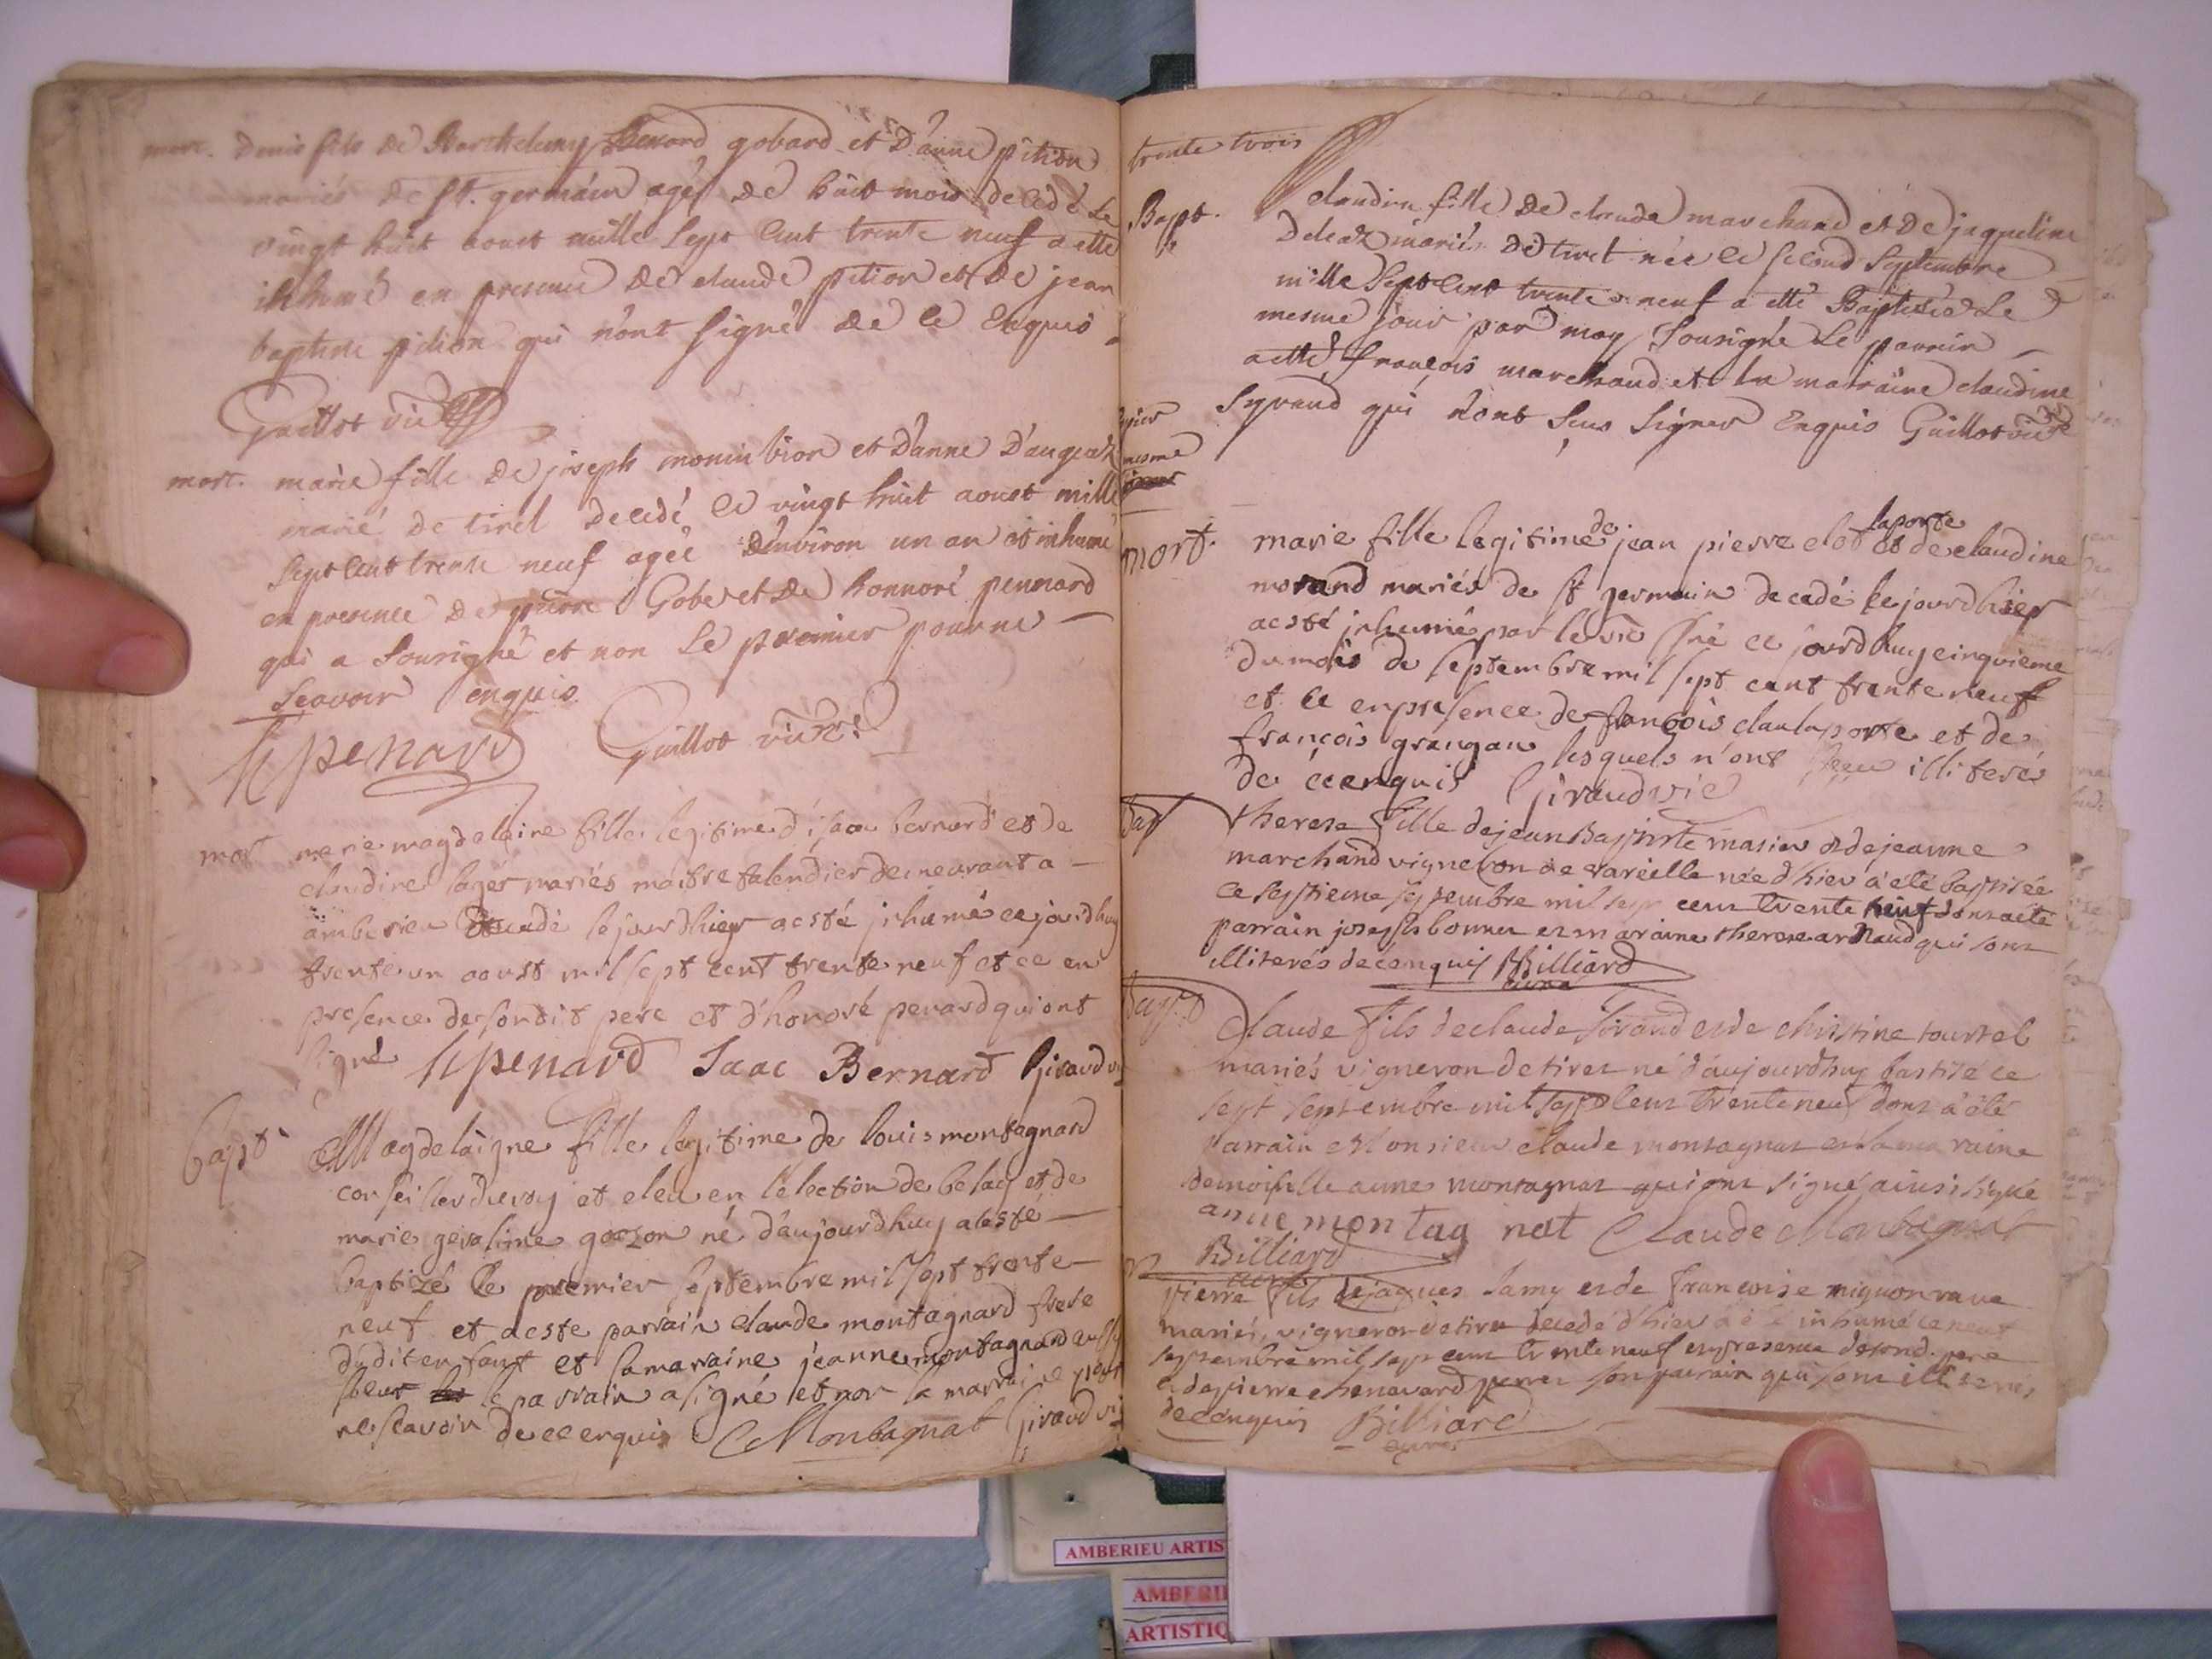 mort. Denis fils de Barthelemy Benard gobard et D'anne pition
mariés de st. germain agé de huit mois decedé Le
vingt huit aoust mille sept cent trente neuf a etté
inhumé en presence de claude pition et de jean
baptiste pition qui n'ont signé de ce Enquis
Guillot vic
mort. marie fille de joseph monin et D'anne D'angeat
marié de tiret decedé le vingt huit aoust mille
sept cent trente neuf agée d'environ un an et inhumé
en presence de pierre Gober et De honnoré pennard
qui a sousigné et non Le premier pour ne
scavoir enquis
h penard Guillot vicre
mor marie magdelaine fille legitime d'isaac bernard et de
claudine lager mariés maitre talendier demeurant a
amberieu decedé le jourdhier a esté jnhumé ce jourdhuy
trente un aoust mil sept cent trente neuf et ce en
presence de sondit pere et d'honoré penard qui ont
signé h penard Isaac Bernard Giraud vi
bapt Magdelaigne fille legitime de louis montagnard
conseiller du roy et eleu en l'election de belay et de
marie geroline gorzon né d'aujourdhuy a esté
baptizé le premier septembre mil sept trente
neuf et a este parrain claude montagnard frere
dudit enfant et la marraine jeanne montagnard aussy
soeur le parrain a signé et non la marraine pour
ne scavoir de ce enquis CMontagnat Giraud vi
trente trois
Bapt. claudine fille de claude marchand et de jaqueline
Deleaz mariés de tiret née le second septembre
mille sept cent trente neuf a etté Baptisée Le
mesme jour par moy sousigné Le parrain
a etté françois marchand et la maraine claudine
Syraud qui n'ont sçus signer Enquis Guillot vicre
mesme
laporte
mort. marie fille legitime de jean pierre clot et de claudine
morand mariés de st germain decedé le jourdhier
a esté jnhumé par le vic sné ce jourdhuy cinquieme
du mois de septembre mil sept cent trente neuf
et ce en presence de francois clau laporte et de
françois grangan lesquels n'ont illiterés
de ce enquis Giraud vic
bap therese fille de jean Baptiste masier et de jeanne
marchand vigneron de vareille née d'hier a été baptisée
ce septieme septembre mil sept cent trente neuf dont a été
parrain joseph bonnet et maraine therese arnaud qui sont
illiterés de ce enquis Billiard
curé
bapt Claude fils de claude et de christine tourtel
mariés vigneron de tiret né d'aujourdhuy batisé ce
sept septembre mil sept cent trente neuf dont a été
parrain Monsieur claude montagnat et la maraine
demoiselle anne montagnat qui ont signé ainsi signé
anne montag nat Claude Montagnat
Billiard
curé
pierre fils de jaques lamy et de francoise mignonrave
mariés, vigneron de tiret decedé d'hier a été inhumé ce neuf
septembre mil sept cent trente neuf en presence de sond. pere
et de pierre chenavard perret son parrain qui sont illiterés
de ce enquis Billiard
curé
AMBERIEU ARTIS
AMBERI
ARTISTIQ